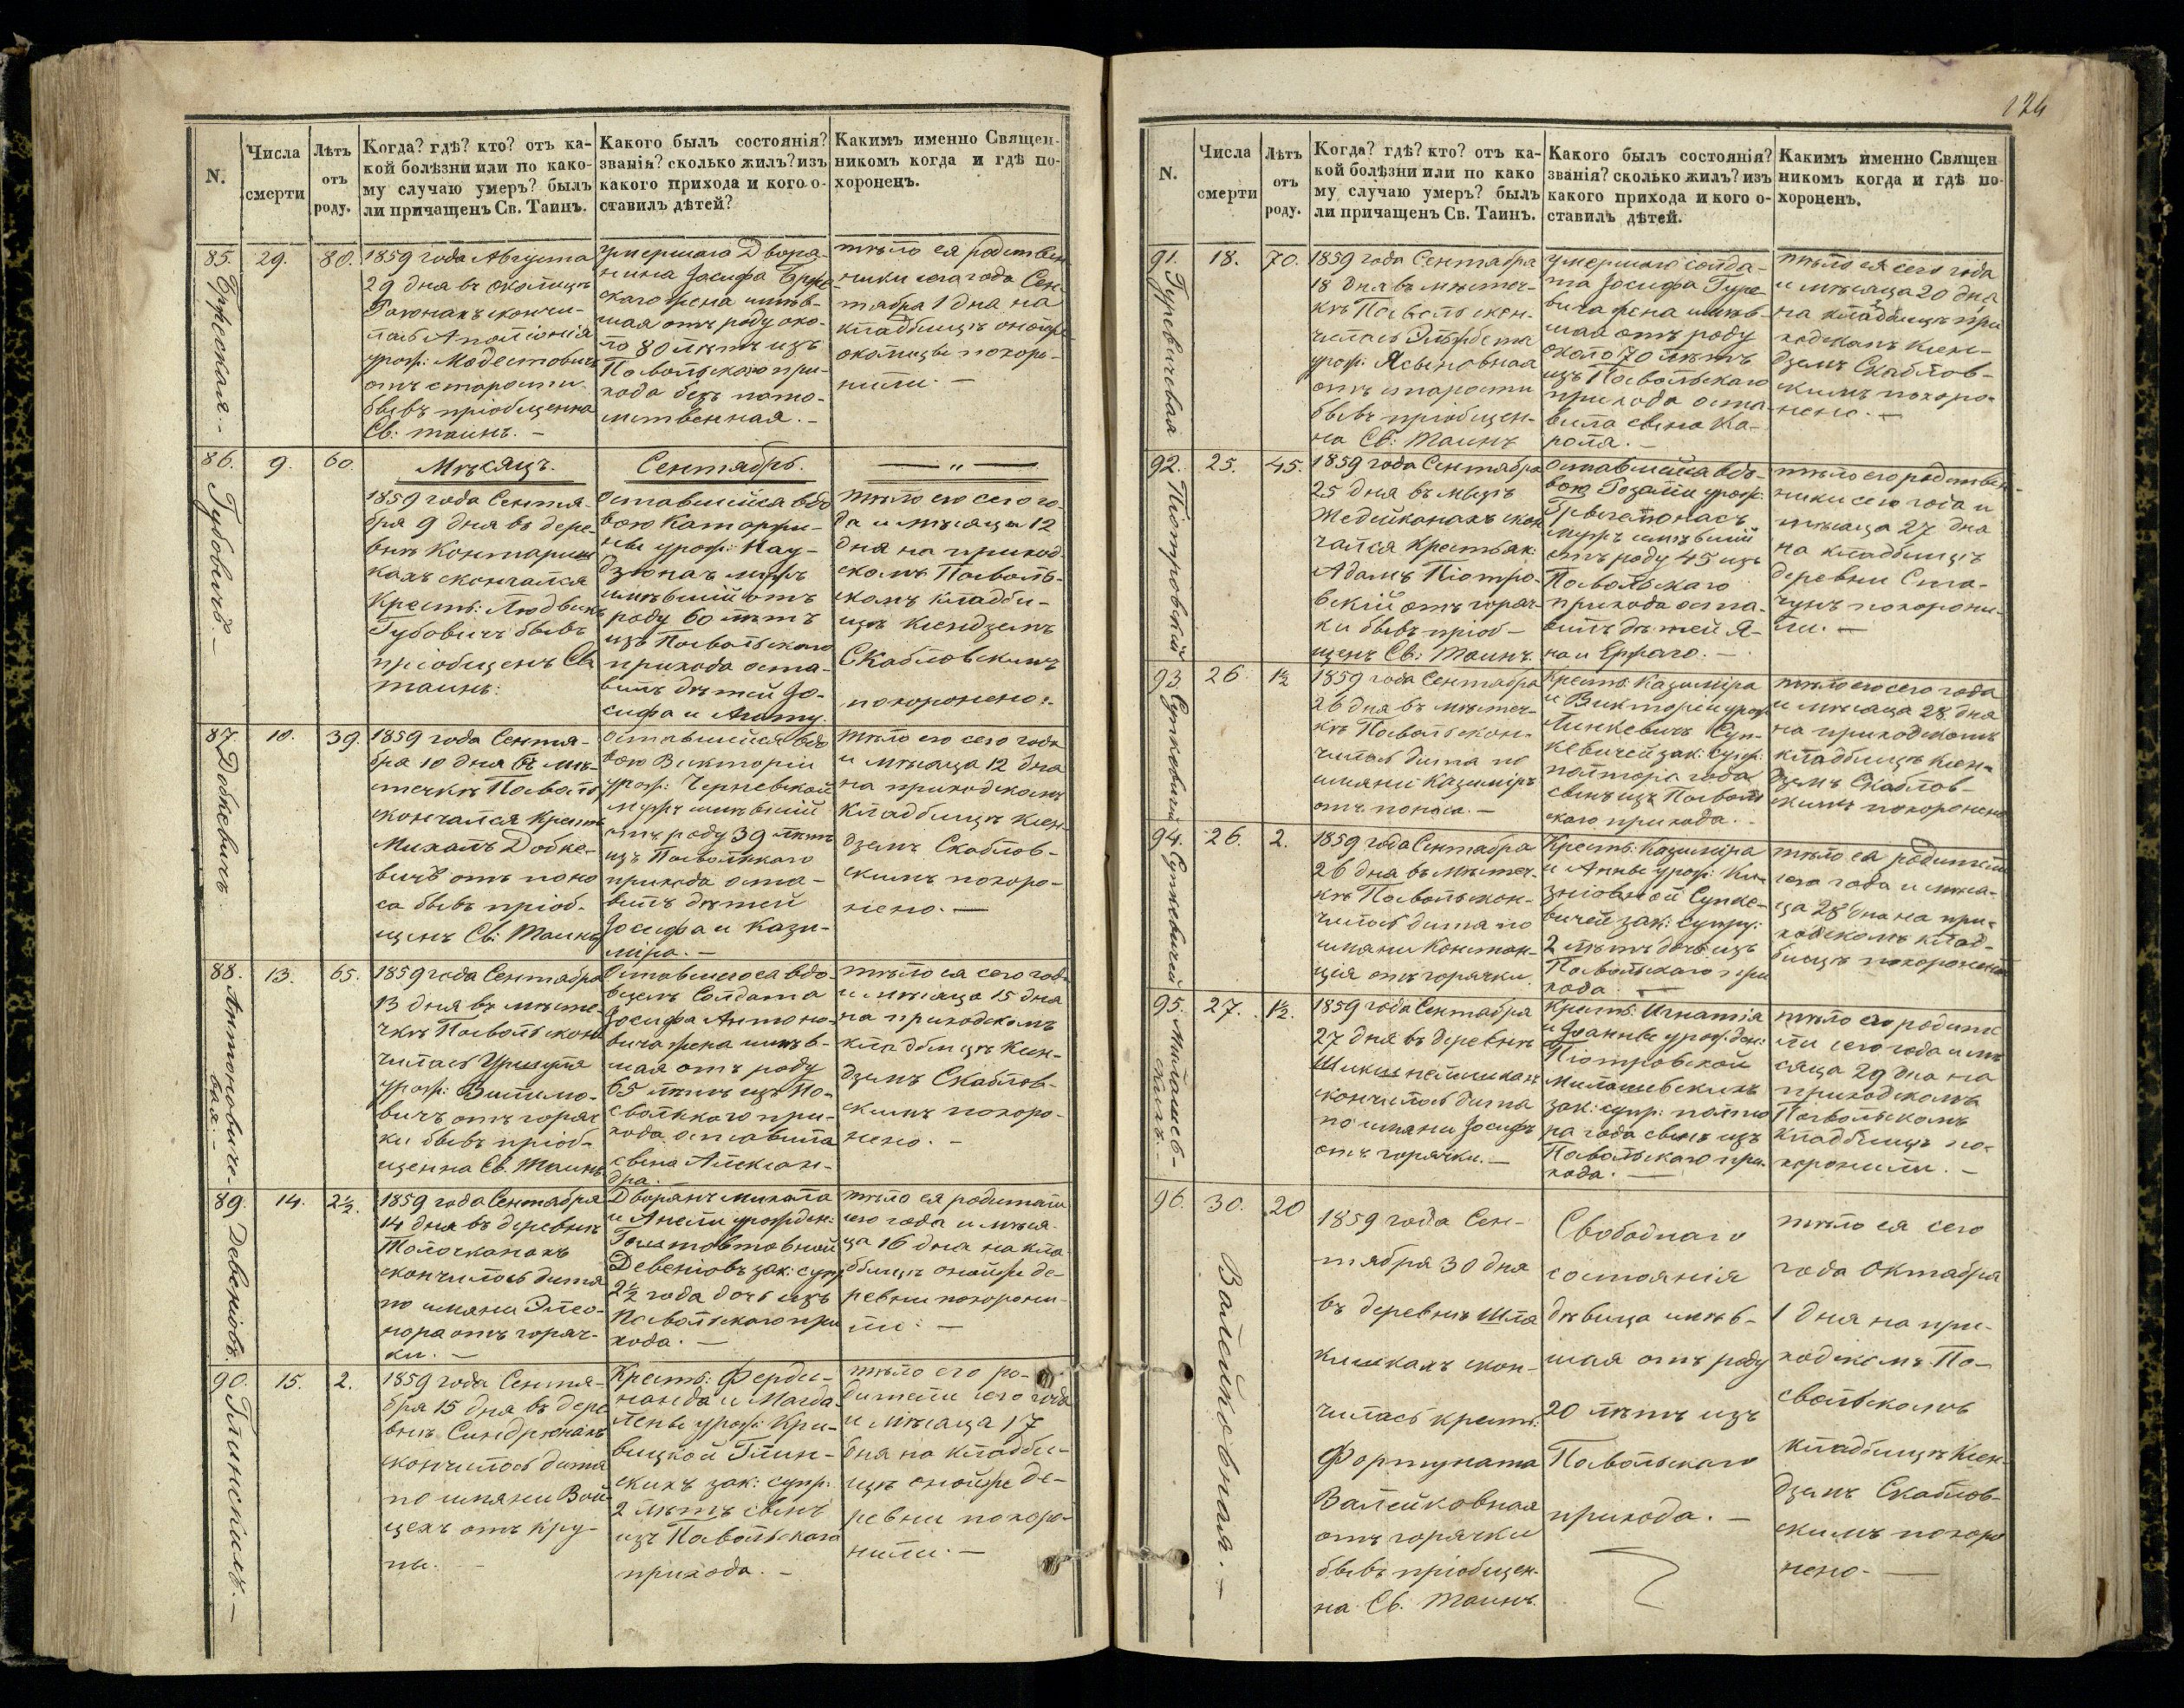 124
N.
Числа
смерти
Лѣтъ
отъ
роду.
Когда? гдѣ? кто? отъ ка-
кой болѣзни или по како-
му случаю умеръ? былъ
ли причащенъ Св. Таинъ.
Какого былъ состоянія?
званія? сколько жилъ? изъ
какого прихода и кого о-
ставилъ дѣтей?
Какимъ именно Священ-
никомъ когда и гдѣ по-
хороненъ.
85.
29.
80.
1859 года Августа
29 дня въ околицѣ
скончи-
лась Аполіонія
урож: Модестовичъ
отъ старости
бывъ пріобщенна
Св: таинъ. —
умершаго Дворя-
нина Іосифа
жена имѣв-
шая отъ роду око-
ло 80 лѣтъ изъ
Посвольскаго при-
хода безъ пото-
мственная. —
тѣло ея родствен-
ники сего года Сен-
тября 1 дня на
кладбищѣ онойже
околицы похоро-
нили. —
86.
Губовичъ. —
9.
60.
Мѣсяцъ.
Сентябрь.
— „ —
1859 года Сентя-
бря 9 дня въ дере-
внѣ
кахъ скончался
Крестьв: Людвикъ
Губовичъ бывъ
пріобщенъ Св
таинъ:
Оставшейся вдо
вою Катаржи-
ны урож: Нау-
дзюнасъ мужъ
имѣвшій отъ
роду 60 лѣтъ
изъ Посвольскаго
прихода оста-
вилъ дѣтей Іо-
сифа и Анну.
тѣло его сего го-
да и мѣсяца 12
дня на приход-
скомъ Посволь-
скомъ кладби-
щѣ Ксендземъ
Скабловскимъ
похоронено:
87.
Добкевичъ.
10.
39.
1859 года Сентя-
бря 10 дня въ мѣ-
стечкѣ Посволь
скончался Крест
Михалъ Добке-
вичъ отъ поно
са бывъ пріоб-
щенъ Св: Таинъ
оставшейся вдо
вою Викторіи
урож: Черневской
мужъ имѣвшій
отъ роду 39 лѣтъ
изъ Посвольскаго
прихода оста-
вилъ дѣтей
Іосифа и Кази-
міра. —
тѣло его сего года
и мѣсяца 12 дня
на приходскомъ
кладбищѣ Ксен-
дземъ Скаблов-
скимъ похоро-
нено. —
88.
Антоновиче-
вая. —
13.
65.
1859 года Сентября
13 дня въ мѣсте-
чкѣ Посволь скон
чилась Уршуля
урож: Витмо-
вичъ отъ горяч
ки бывъ пріоб-
щенна Св. Таинъ
Оставшегося вдо-
вцемъ Солдата
Іосифа Антоно-
вича жена имѣв-
шая отъ роду
65 лѣтъ изъ По-
свольскаго при-
хода оставила
сына Алексан-
дра. —
тѣло ея сего года
и мѣсяца 15 дня
на приходскомъ
кладбищѣ Ксен-
дземъ Скаблов-
скимъ похоро-
нено. —
89.
Девеніовъ.
14.
2½.
1859 года Сентября
14 дня въ деревнѣ
Толочканахъ
скончилось дитя
по имяни Элео-
нора отъ горяч-
ки. —
Дворянъ Михала
и Анели урожден:
Гоштовтовной
Девеніовъ зак: супр
2½ года дочь изъ
Посвольскаго при
хода. —
тѣло ея родители
сего года и мѣся-
ца 16 дня на кла-
дбищѣ онойже де-
ревни похорони-
ли: —
90.
Глинскихъ. —
15.
2.
1859 года Сентя-
бря 15 дня въ дере
внѣ Синдрюнахъ
скончилось дитя
по имяни Вой-
цехъ отъ кру-
пы. —
Крестьв: Ферди-
нанда и Магда-
лены урож: Кри-
вицкой Глин-
скихъ зак: супр.
2 лѣтъ сынъ
изъ Посвольскаго
прихода. —
тѣло его ро-
дители сего года
и мѣсяца 17
дня на кладби-
щѣ онойже де-
ревни похоро-
нили. —
N.
Числа
смерти
Лѣтъ
отъ
роду.
Когда? гдѣ? кто? отъ ка-
кой болѣзни или по како
му случаю умеръ? былъ
ли причащенъ Св. Таинъ.
Какого былъ состоянія?
званія? сколько жилъ? изъ
какого прихода и кого о-
ставилъ дѣтей.
Какимъ именно Священ
никомъ когда и гдѣ по-
хороненъ.
91.
Гуревичевая
18.
70.
1859 года Сентября
18 дня въ мѣстеч-
кѣ Посволь скон-
чилась Эльжбета
урож: Ясыновная
отъ старости
бывъ пріобщен-
на Св: Таинъ
умершаго солда-
та Іосифа Гуре-
вича жена имѣв-
шая отъ роду
около 70 лѣтъ
изъ Посвольскаго
прихода оста-
вила сына Ка-
роля. —
тѣло ея сего года
и мѣсяца 20 дня
на кладбищѣ при
ходскомъ Ксен-
дземъ Скаблов-
скимъ похоро-
нено. —
92.
Піотровскій
25.
45.
1859 года Сентября
25 дня въ мызѣ
Жедейконахъ скон
чался Крестьян:
Адамъ Піотро-
вскій отъ горяч-
ки бывъ пріоб-
щенъ Св: Таинъ.
Оставшейся вдо-
вою Розаліи урож:
мужъ имѣвшій
отъ роду 45 изъ
Посвольскаго
прихода оста-
вилъ дѣтей Я-
на и Ержаго. —
тѣло его родствен-
ники сего года и
мѣсяца 27 дня
на кладбищѣ
деревни
похорони-
ли. —
93.
Сункевичей
26.
1½
1859 года Сентября
26 дня въ мѣстеч-
кѣ Посволь скон-
чилось дитя по
имяни Казиміръ
отъ поноса. —
Крестьв: Казиміра
и Викторіи урож
Линкевичъ Сун-
кевичей зак: супр:
полтора года
сынъ изъ Посволь
скаго прихода. —
тѣло его сего года
и мѣсяца 28 дня
на приходскомъ
кладбищѣ Ксен-
дземъ Скаблов-
скимъ похоронено
94.
Сункевичей
26.
2.
1859 года Сентября
26 дня въ мѣстеч-
кѣ Посволь скон-
чилось дитя по
имяни Констан-
ція отъ горячки.
Крестьв: Казиміра
и Анны урож:
Сунке-
вичей зак: супру:
2 лѣтъ дочь изъ
Посвольскаго при
хода. —
тѣло ея родители
сего года и мѣся-
ца 28 дня на при-
ходскомъ клад-
бищѣ похоронили
95.
Милошев-
скихъ. —
27.
1½.
1859 года Сентября
27 дня въ деревнѣ
скончилось дитя
по имяни Іосифъ
отъ горячки. —
Крестьв: Игнатія
и Іоанны урожден:
Піотровской
Милошевскихъ
зак: супр: полто
ра года сынъ изъ
Посвольскаго при-
хода. —
тѣло его родите
ли сего года и мѣ
сяца 29 дня на
приходскомъ
Посвольскомъ
кладбищѣ по-
хоронили. —
96.
Валейковная. —
30.
20
1859 года Сен-
тября 30 дня
въ деревнѣ Шла
кишкахъ скон-
чилась крестьв:
Фортуната
Валейковная
отъ горячки
бывъ пріобщен-
на Св. Таинъ.
Свободнаго
состоянія
дѣвица имѣв-
шая отъ роду
20 лѣтъ изъ
Посвольскаго
прихода. —
тѣло ея сего
года Октября
1 дня на при-
ходскомъ По-
свольскомъ
кладбищѣ Ксен-
дземъ Скаблов-
скимъ похоро
нено. —